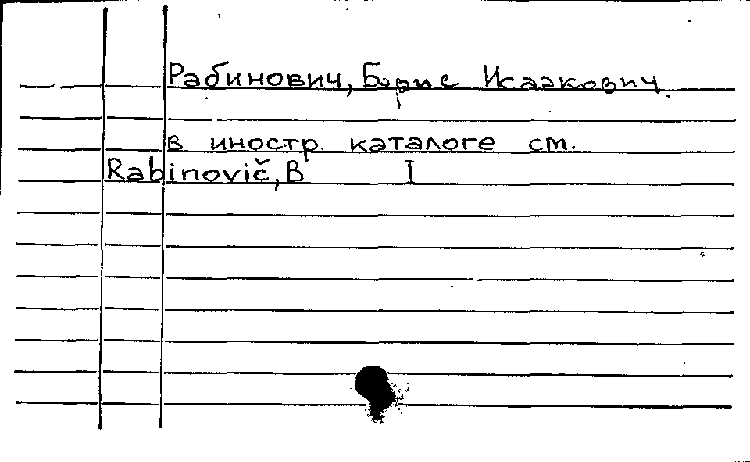 Рабинович, Борис Исаакович.
в иностр. каталоге см.
Rabinovič, B I